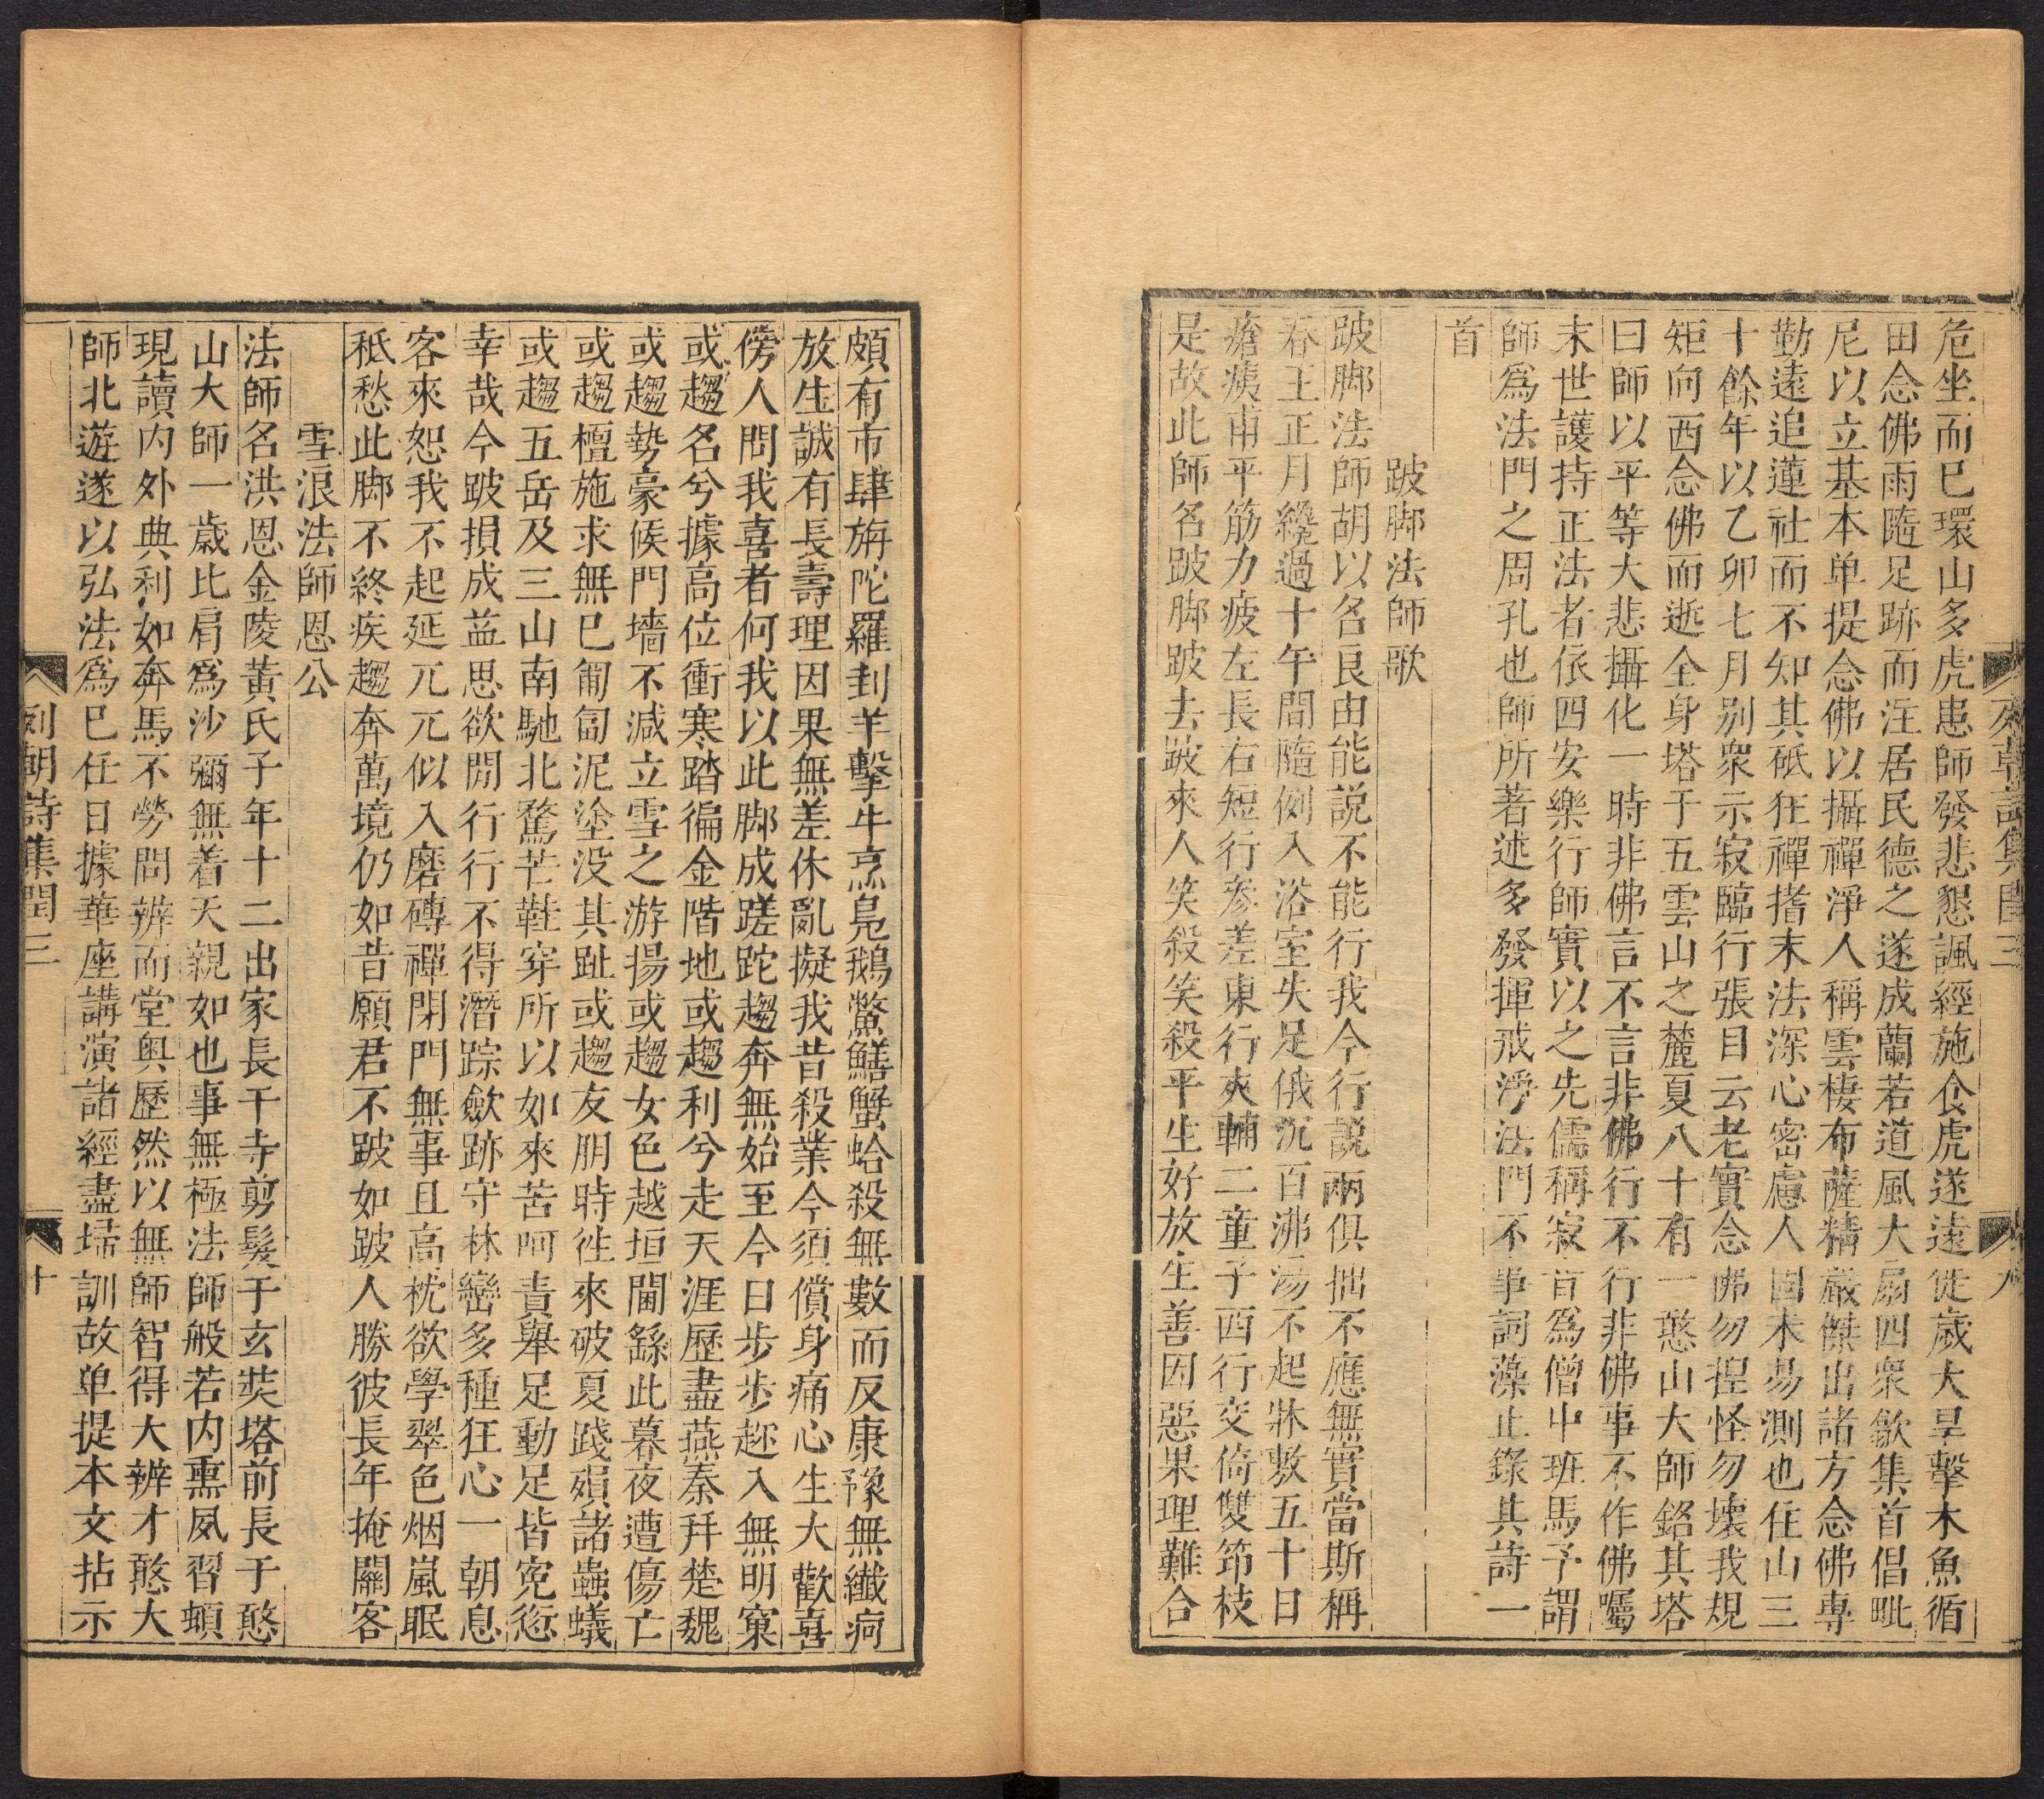 危坐而已環山多虎患師發悲懇諷經施食虎遂遠徙歲大旱擊木魚循
田念佛雨隨足跡而注居民德之遂成蘭若道風大扇四衆歙集首倡毗
尼以立基本单提念佛以攝禪淨人稱雲棲布薩精嚴傑出諸方念佛專
勤遠追蓮社而不知其砥狂禪揩末法深心密慮人固未易測也住山三
十餘年以乙卯七月別衆示寂臨行張目云老實念佛勿揑怪勿壞我規
矩向西念佛而逝全身塔于五雲山之麓夏八十有一憨山大師銘其塔
曰師以平等大悲攝化一時非佛言不言非佛行不行非佛事不作佛囑
末世護持正法者依四安樂行師實以之先儒稱寂音爲僧中班馬予謂
師爲法門之周孔也師所著述多發揮戒淨法門不事詞藻止錄其詩一
首
跛脚法師歌
跛脚法師胡以名良由能說不能行我今行說兩俱拙不應無實當斯稱
春王正月纔過十午間隨例入浴室失足俄沉百沸湯不起牀敷五十日
瘡痍甫平筋力疲左長右短行參差東行夾輔二童子西行交倚雙筇枝
是故此師名跛脚跛去跛來人笑殺笑殺平生好放生善因惡果理難合
頗有市肆旃陀羅刲羊擊牛烹鳧鵝鱉鱔蟹蛤殺無數而反康豫無纖疴
放生誠有長壽理因果無差休亂擬我昔殺業今須償身痛心生大歡喜
傍人問我喜者何我以此脚成蹉跎趨奔無始至今日步步趂入無明窠
或趨名兮據高位衝寒踏徧金階地或趨利兮走天涯歷盡燕秦幷楚魏
或趨勢豪候門墻不減立雪之游揚或趨女色越垣閫繇此暮夜遭傷亡
或趨檀施求無已匍匐泥塗没其趾或趨友朋時徃來破夏踐殞諸蟲蟻
或趨五岳及三山南馳北騖芒鞋穿所以如來苦呵責舉足動足皆寃愆
幸哉今跛損成益思欲閒行行不得潛踪歛跡守林巒多種狂心一朝息
客來恕我不起延兀兀似入磨磚禪閉門無事且高枕欲學翠色烟嵐眠
秪愁此脚不終疾趨奔萬境仍如昔願君不跛如跛人勝彼長年掩關客
雪浪法師恩公
法師名洪恩金陵黃氏子年十二出家長干寺剪髮于玄奘塔前長于憨
山大師一歲比肩爲沙彌無着天親如也事無極法師般若内熏夙習頓
現讀内外典利如奔馬不勞問辨而堂奥歷然以無師智得大辨才憨大
師北遊遂以弘法爲已任日據華座講演諸經盡埽訓故单提本文拈示
列朝詩集閏三
十